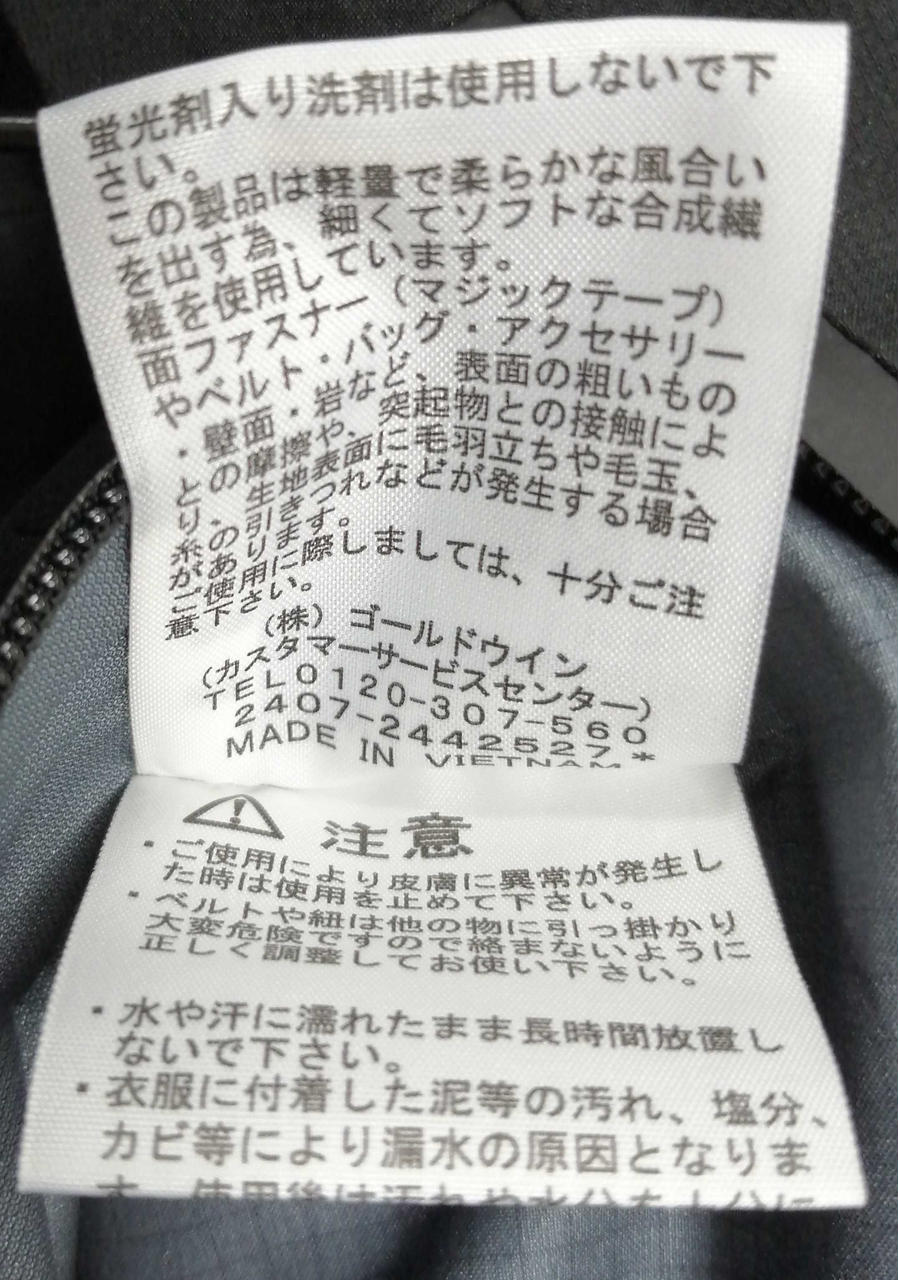 蛍光剤入り洗剤は使用しないで下
さい。
この製品は軽量で柔らかな風合い
を出す為、細くてソフトな合成繊
維を使用しています。
面ファスナー(マジックテープ)
やベルト・バッグ・アクセサリー
・壁面・岩など、表面の粗いもの
との摩擦や、突起物との接触によ
り、生地表面に毛羽立ちや毛玉、
糸の引きつれなどが発生する場合
があります。
ご使用に際しましては、十分ご注
意下さい。
(株) ゴールドウイン
(カスタマーサービスセンター)
TEL0120-307-560
2407-2442527*
MADE IN VIETNAM
注意
・ご使用により皮膚に異常が発生し
た時は使用を止めて下さい。
・ベルトや紐は他の物に引っ掛かり
大変危険ですので絡まないように
正しく調整してお使い下さい。
・水や汗に濡れたまま長時間放置し
ないで下さい。
・衣服に付着した泥等の汚れ、塩分、
カビ等により漏水の原因となりま
す。使用後は汚れや水分を十分に